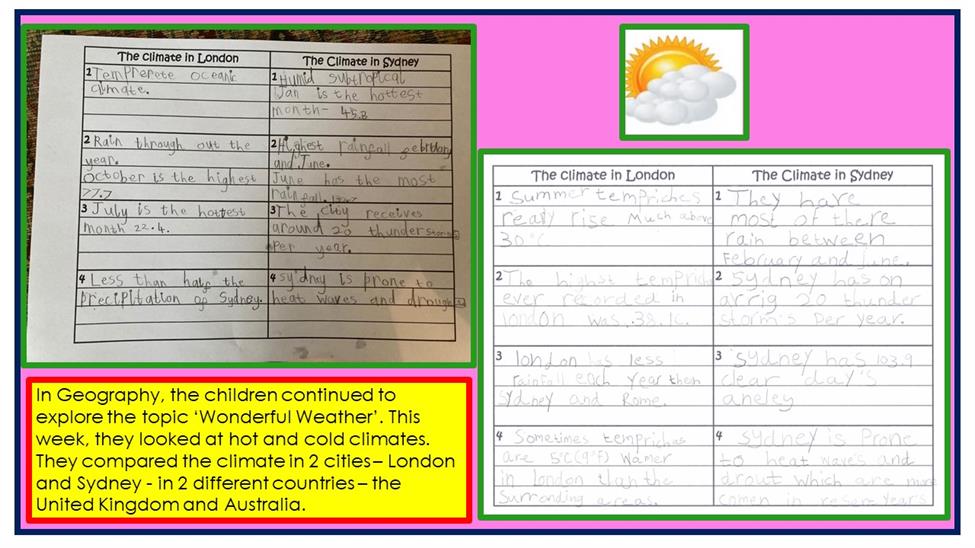 The climate in London
The Climate in Sydney
1 Temprerete oceanic
climate.
1 Humid subtropical
Jan is the hottest
month- 45.8
2 Rain through out the
year.
October is the highest
77.7
2 Highest rainfall
and June.
June has the most
rain fall.
3 July is the hottest
month 22.4.
3 The city receives
around 20 thunder storms
per year.
4 Less than half the
Precipitation of Sydney.
4 sydney is prone to
heat waves and
The climate in London
The Climate in Sydney
1 Summer tempriches
rise Much above
30°c
1 They have
most of there
rain between
February and June.
2 The highest
ever recorded in
london was 38.1c.
2 Sydney has on
arrig 20 thunder
storm's per year.
3 london has less
rainfall each year then
Sydney and Rome.
3 Sydney has 103.9
clear day's
aneley
4 Sometimes tempriches
are 5°C (9°F) Wamer
in london than the
Surronding areas.
4 Sydney is Prone
to heat waves and
drout which are more
comen in years
In Geography, the children continued to
explore the topic ‘Wonderful Weather’. This
week, they looked at hot and cold climates.
They compared the climate in 2 cities – London
and Sydney - in 2 different countries – the
United Kingdom and Australia.